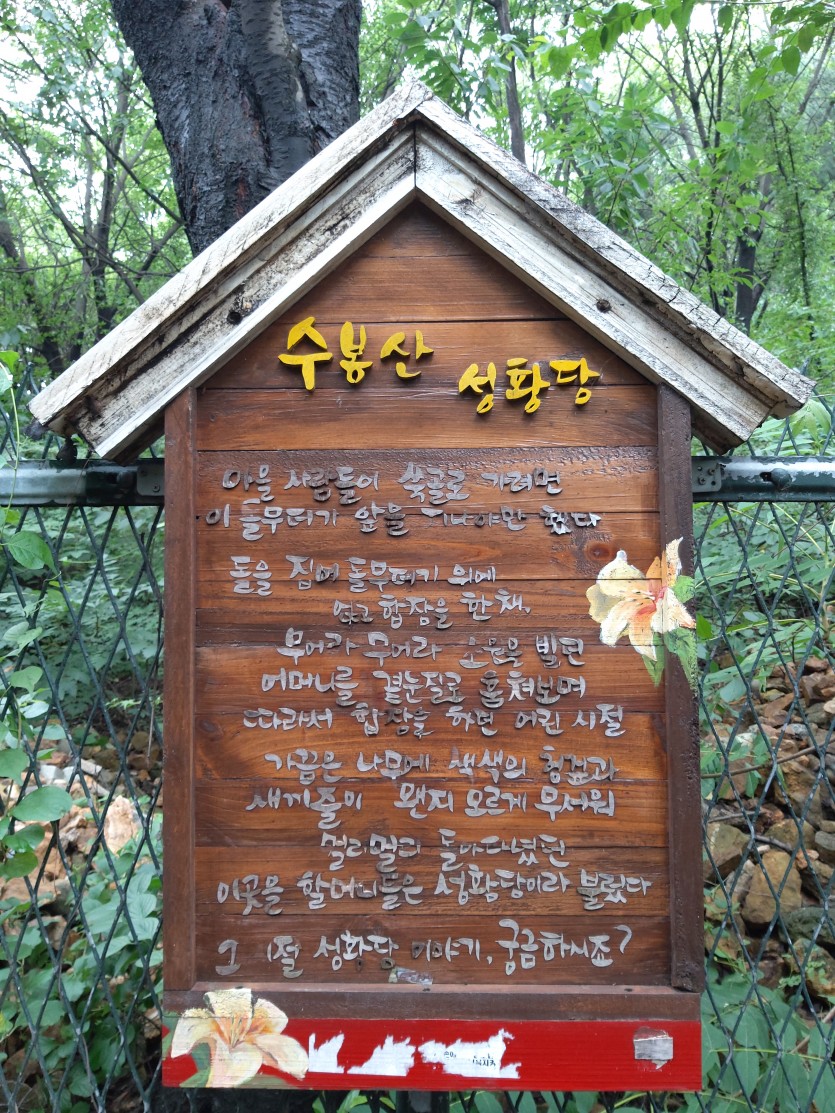 수봉산 성황당
마을 사람들이 쑥골로 가려면
이 돌무더기가 앞을 지나야만 했다
돌을 집어 돌무더기 위에
얹고 합장을 한 채,
무어라 무어라 소원을 빌던
어머니를 곁눈질로 훔쳐보며
따라서 합장을 하던 어린 시절
가끔은 나무에 색색의 헝겊과
새끼줄이 왠지 모르게 무서워
멀리멀리 돌아다녔던
이곳을 할머니들은 성황당이라 불렀다
그 시절 성황당 이야기, 궁금하시죠?